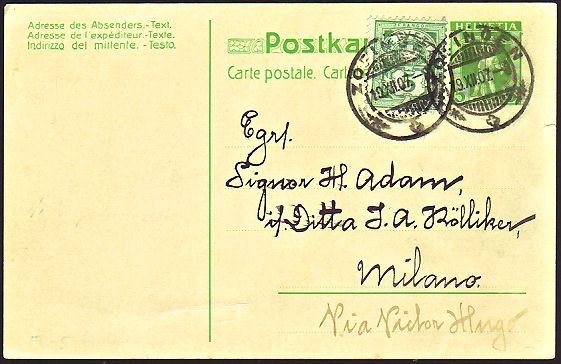 Adresse des Absenders.-Text.
Adresse de l'expéditeur.-Texte.
Indirizzo del mittente. -Testo.
Postkar
HELVETIA
Carte postale. Cart
5
5
ZOFINGEN
19.XII.07.
ZOFINGEN
19.XII.07.
Egr.
Signor H. Adam,
i/ Ditta J. A. Kölliker,
Milano.
Via Victor Hugo